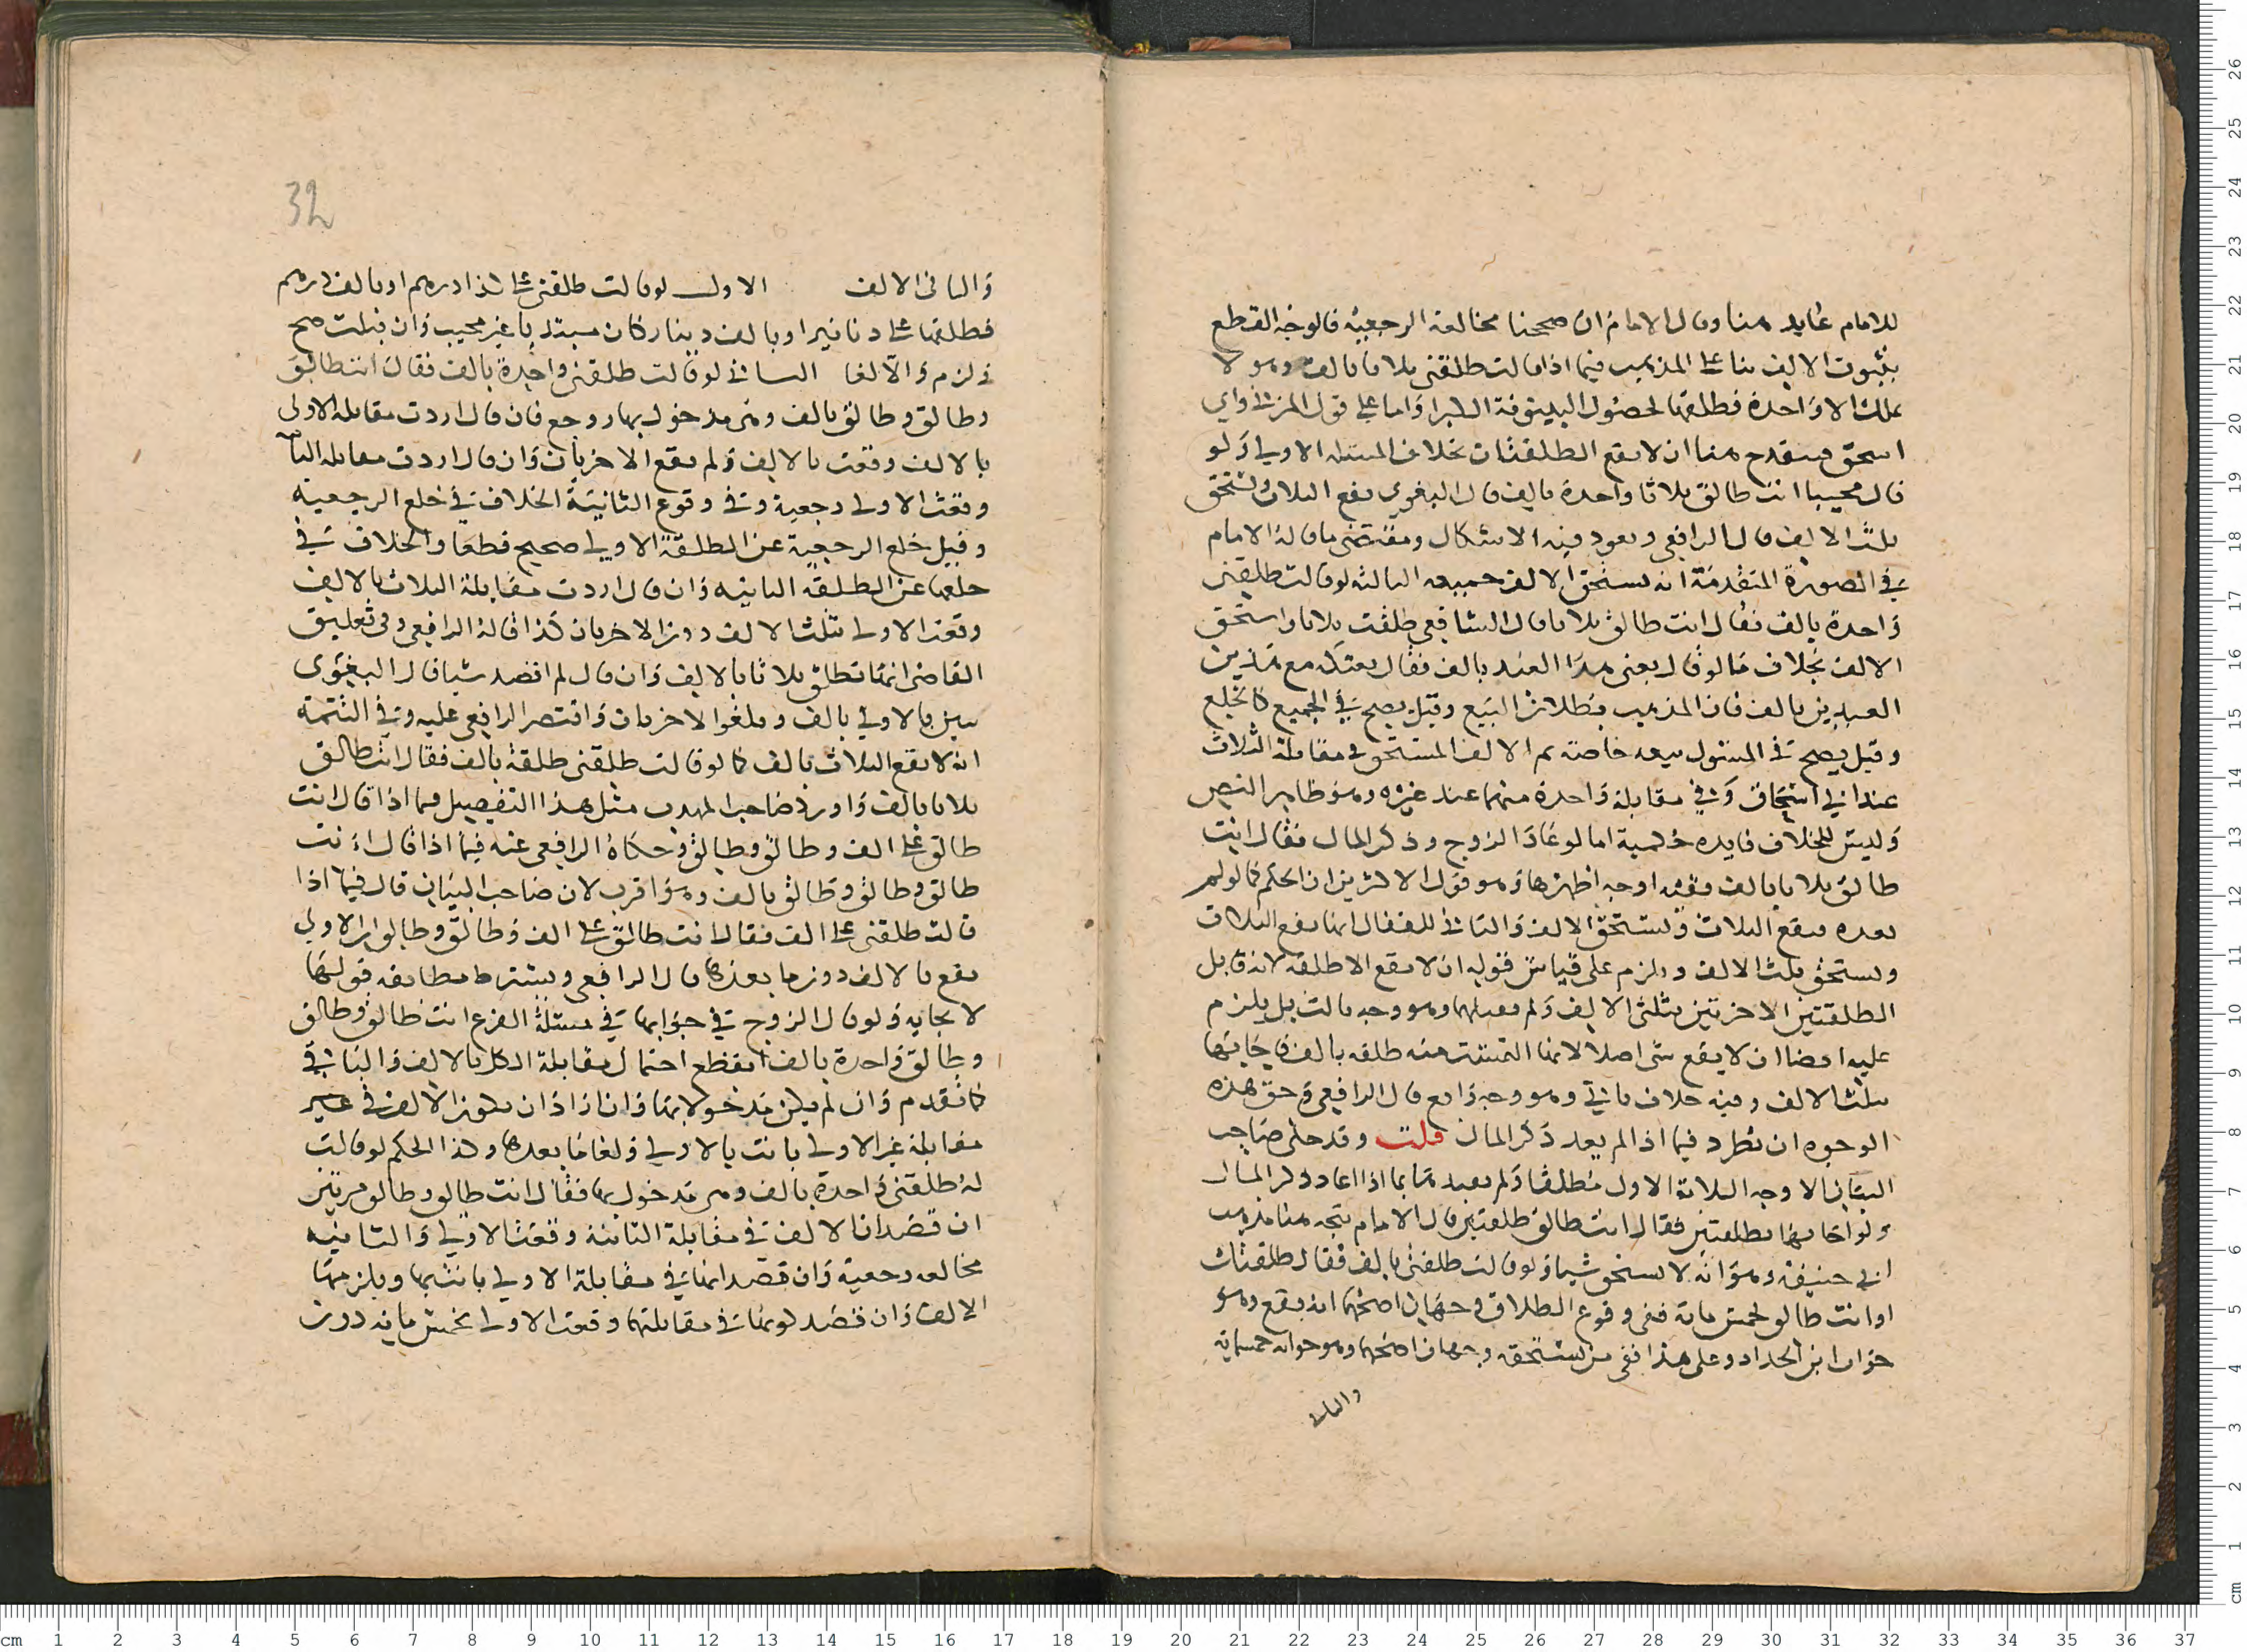 للامام عايد هنا وقال الامام ان صححنا مخالعة الرجعية فالوجه القطع
بثبوت الالف بنا على المذهب فيما اذا قالت طلقني ثلاثا بالف وهو لا
يملك الا واحدة فطلقها لحصول البينونة الكبرا واما على قول المزني واي
اسحق فينقدح هنا ان لا يقع الطلقتان بخلاف المسئلة الاولى ولو
قال مجيبا انت طالق ثلاثا واحدة بالف قال البغوي يقع الثلاث ويستحق
ثلث الالف قال الرافعي ويعود فيه الاشكال ومقتضى ما قاله الامام
في الصورة المتقدمة انه يستحق الالف جميعه الثالثة لو قالت طلقني
واحدة بالف فقال انت طالق ثلاثا قال الشافعي طلقت ثلاثا واستحق
الالف بخلاف ما لو قال بعني هذا العبد بالف فقال بعتكه مع هذين
العبدين بالف فان المذهب بطلان البيع وقيل يصح في الجميع كالخلع
وقيل يصح في المسئول بيعه خاصة ثم الالف المستحق في مقابلة الثلاث
عند ابي اسحاق وفي مقابلة واحدة منهما عند غيره وهو ظاهر النص
وليس للخلاف فايده حكمية اما لو عاد الزوج وذكر المال فقال انت
طالق ثلاثا بالف ففيه اوجه اظهرها وهو قول الاكثرين ان الحكم كما لو لم
يعده فيقع الثلاث ويستحق الالف والثاني للقفال انها يقع الثلاث
ويستحق ثلث الالف ويلزم على قياس قوله ان لا يقع الا طلقة لانه قابل
الطلقتين الاخرتين بثلثي الالف ولم تقبلهما وهو وجه ثالث بل يلزم
عليه ايضا ان لا يقع شي اصلا لانها التمست منه طلقه بالف فاجابها
بثلث الالف وفيه خلاف ياتي وهو وجه رابع قال الرافعي وحق هذه
الوجوه ان تطرد فيما اذا لم يعد ذكر المال قلت وقد حكى صاحب
البيان الاوجه الثلاثة الاول مطلقا ولم يقيدها بما اذا اعاد ذكر المال
ولو اجابها بطلقتين فقال انت طالق طلقتين قال الامام يتجه هنا مذهب
ابي حنيفة وهو انه لا يستحق شيا ولو قالت طلقني بالف فقال طلقتك
او انت طالق بخمس ماية ففي وقوع الطلاق وجهان اصحهما انه يقع وهو
جواب ابن الحداد وعلى هذا ففي ما يستحقه وجهان اصحهما وهو جوابه خمسمايه
والثاني
32
والثاني الالف الاول لو قالت طلقني على كذا درهم او بالف درهم
فطلقها على دنانير او بالف دينار كان مبتديا غير مجيب وان قبلت صح
ولزم والا لغا الثاني لو قالت طلقني واحدة بالف فقال انت طالق
وطالق وطالق بالف وهي مدخول بها روجع فان قال اردت مقابلة الاولى
بالالف وقعت بالالف ولم يقع الاخريان وان قال اردت مقابلة الثا
وقعت الاولى رجعية وفي وقوع الثانية الخلاف في خلع الرجعية
وقيل خلع الرجعية عن الطلقة الاولى صحيح قطعا والخلاف في
خلعها عن الطلقه الثانيه وان قال اردت مقابلة الثلاث بالالف
وقعت الاولى بثلث الالف دون الاخريان كذا قاله الرافعي وفي تعليق
القاضي انها تطلق ثلاثا بالالف وان قال لم اقصد شيا قال البغوي
تبين بالاولى بالف ويلغوا الاخريان واقتصر الرافعي عليه وفي التتمة
انه لا يقع الثلاث بالف كما لو قالت طلقني طلقة بالف فقال انت طالق
ثلاثا بالف واورد صاحب المهذب مثل هذا التفصيل فيما اذا قال انت
طالق على الف وطالق وطالق وحكاه الرافعي عنه فيما اذا قال انت
طالق وطالق وطالق بالف وهو اقرب لان صاحب البيان قال فيما اذا
قالت طلقني على الف فقال انت طالق على الف وطالق وطالق ان الاولى
يقع بالالف دون ما بعدها قال الرافعي ويشترط مطابقه قولها
لايجابه ولو قال الزوج في جوابها في مسئلة الفرع انت طالق وطالق
وطالق واحدة بالف انقطع احتمال مقابلة الكل بالالف والباقي
كما تقدم وان لم يكن مدخولا بها وان اراد ان يكون الالف في غير
مقابلة غير الاولى بانت بالاولى ولغا ما بعدها وكذا الحكم لو قالت
له طلقني واحدة بالف وهي مدخول بها فقال انت طالق وطالق مرتين
ان قصد ان الالف في مقابلة الثانية وقعت الاولى والثانيه
مخالعه رجعية وان قصد انها في مقابلة الاولى بانت بها ويلزمها
الالف وان قصد كونها في مقابلتهما وقعت الاولى بخمس مايه دون